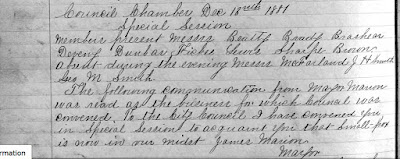 Council Chamber Dec 18th 1811
Special Session
Members present Messrs Beatty Brady Brashear
Devens Dunbar Sharpe Brown
absent during the evening Messrs McFarland J. H. Smith
Geo. M. Smith
The following communication from Mayor Marion
was read as the business for which Council was
convened, To the City Council I have convened you
in Special Session to acquaint you that Small-pox
is now in our midst James Marion
Mayor
rmation